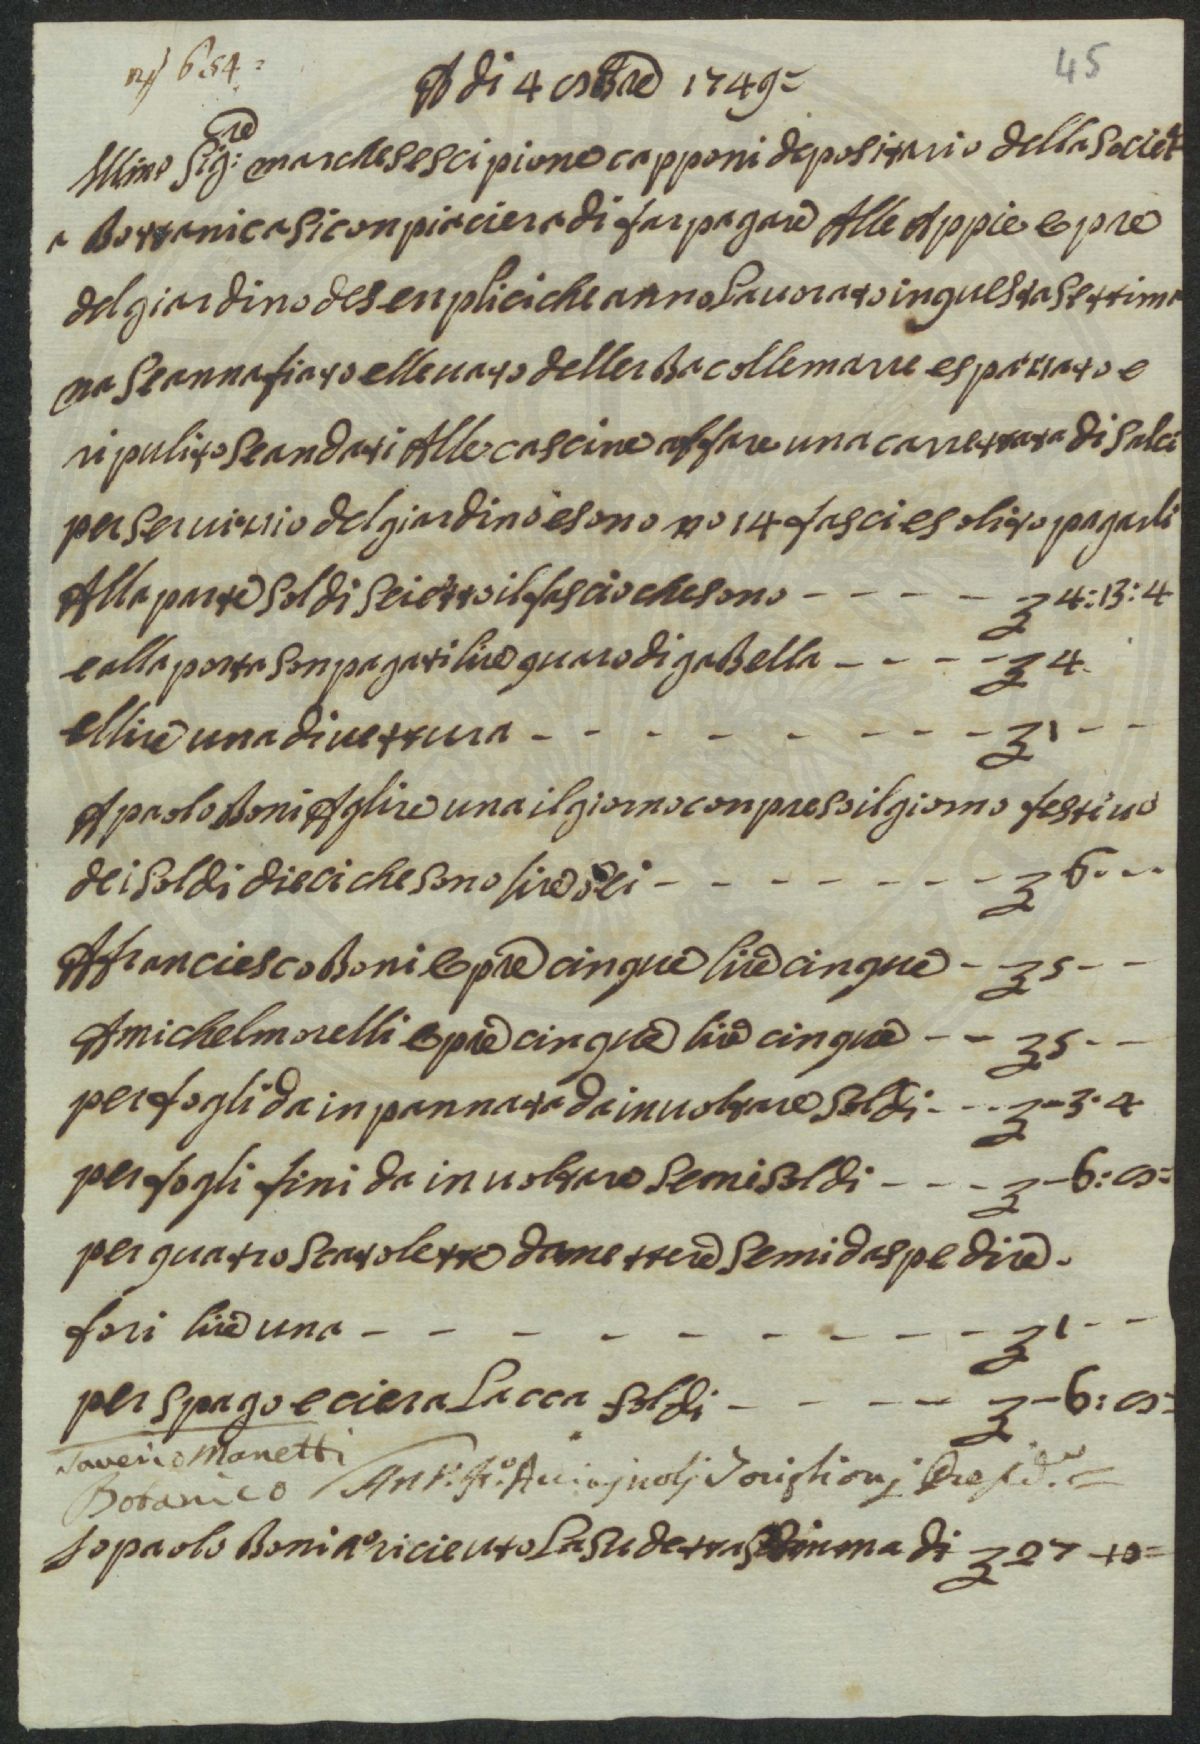 nº 654=
45
A di 4 8bre 1749=
Illmo Sig:re marchese scipione capponi depositario della Societ
a Bottanica si conpiaciera di far pagare Alle Appie e opre
del giardino de senplici che anno Lauorato in questa settima
na se annafiato e lleuato dell erBa coll e marre e spazzato e
ripulito se andati Alle cascine affare una carrettata di salci
per seruizio del giardino e sono no 14 fasci e solito pagarli
Alla parte soldi sei e otto il fascio che sono - - - - - ʒ 4:13:4
e alla porta son pagati lire quaro di gaBella - - - - - ʒ 4.
e llire una di uettura - - - - - - - - - ʒ 1 - -
A paolo Boni A lire una il giorno conpreso il giorno festiuo
dei soldi dieci che sono lire sei - - - - - - - - ʒ 6 - -
A franciesco Boni opre cinque lire cinque - - ʒ 5 - -
A michel morelli opre cinque lire cinque - - ʒ 5 - -
per fogli da inpannata da inuoltare soldi - - - ʒ - 3: 4
per fogli fini da inuoltare semi soldi - - - ʒ - 6: 8=
per quatro scatolette da mettere semi da spedire .
fori lire una - - - - - - - - - ʒ 1 - -
per spago e ciera Lacca soldi - - - - - ʒ - 6: 8=
Saverio Manetti
Botanico Ant.º Fr.º Acciajuoli Torigiani Presid.te =
Io paolo Boni o riceuto La sudetta somma di ʒ 27 10=